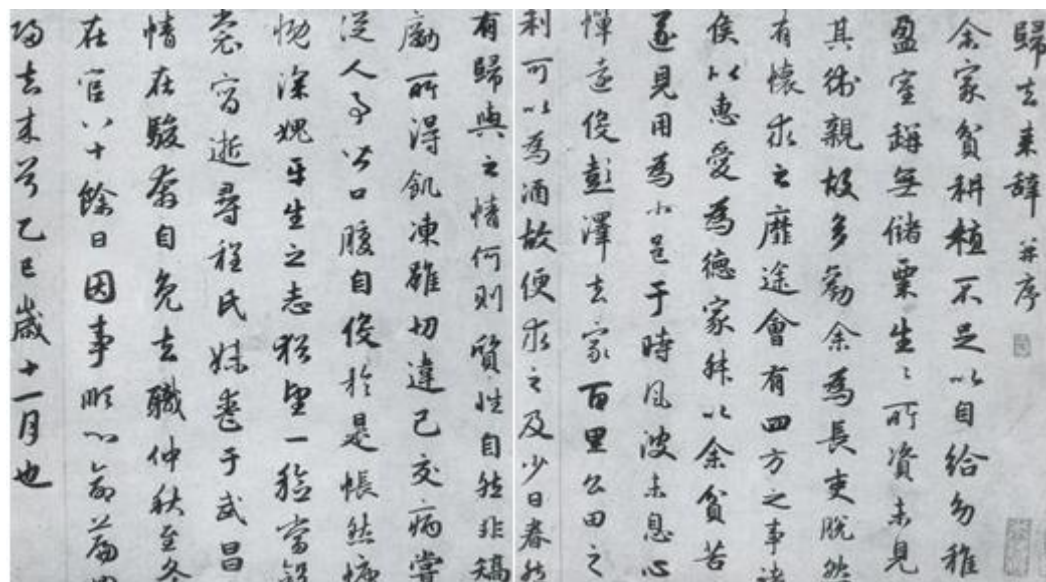 歸去来辭 并序
余家貧耕植不足以自給幼稚
盈室缾無儲粟生〻所資未見
其術親故多勸余為長吏脫然
有懷求之靡途會有四方之事諸
侯以惠愛為德家叔以余貧苦
遂見用為小邑于時風波未息心
憚遠役彭澤去家百里公田之
利可以為酒故便求之及少日眷然
有歸與之情何則質性自然非矯
勵所得飢凍雖切違己交病嘗
從人事皆口腹自役於是悵然慷
慨深愧平生之志猶望一稔當斂
裳宵逝尋程氏妹喪于武昌
情在駿奔自免去職仲秋至冬
在官八十餘日因事順心命篇曰
歸去来兮乙巳歲十一月也